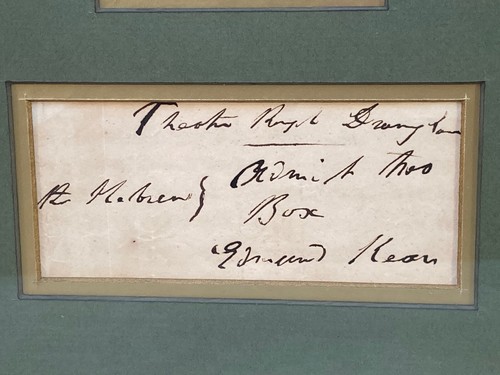 Theatre Royl Drury Lane
Admit two
Box
Edmund Kean